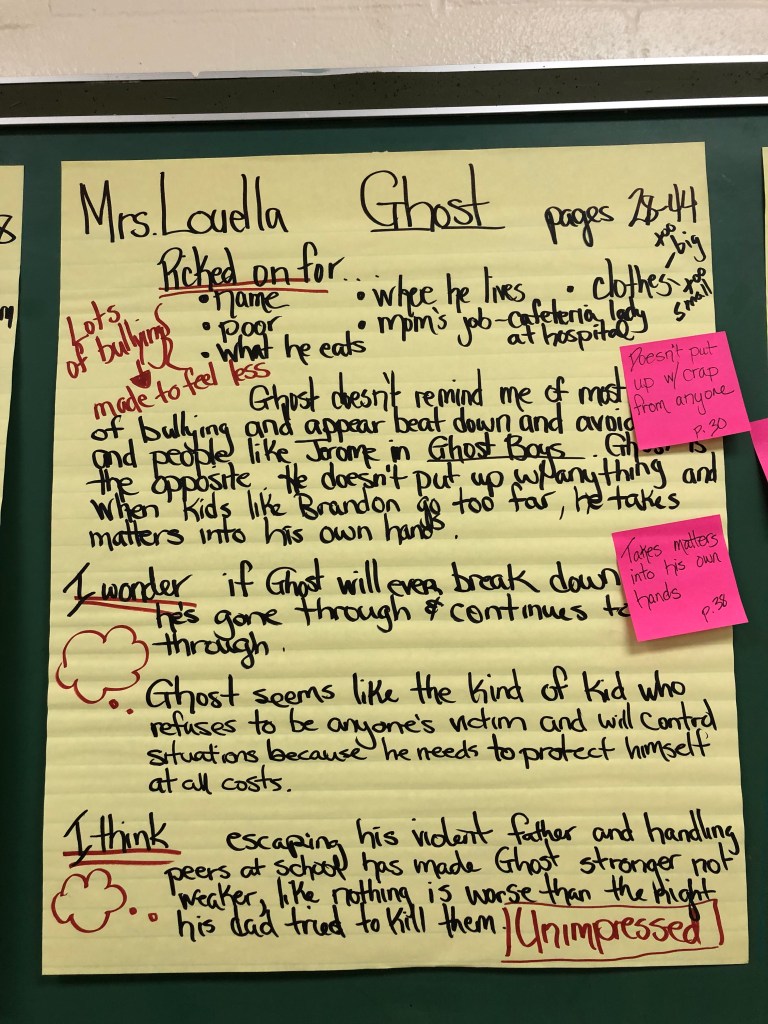 Mrs. Louella Ghost pages 28-44
Picked on for...
• name • where he lives • clothes - too big too small
• poor • mom's job - cafeteria lady at hospital
• what he eats
Lots of bullying
made to feel less
Doesn't put
up w/ crap
from anyone
p. 30
Ghost doesn't remind me of most
of bullying and appear beat down and avoid
and people like Jerome in Ghost Boys. Ghost is
the opposite. He doesn't put up w/ anything and
when kids like Brandon go too far, he takes
matters into his own hands.
Takes matters
into his own
hands
p. 38
I wonder if Ghost will ever break down
he's gone through & continues to
through.
Ghost seems like the kind of kid who
refuses to be anyone's victim and will control
situations because he needs to protect himself
at all costs.
I think escaping his violent father and handling
peers at school has made Ghost stronger not
weaker, like nothing is worse than the night
his dad tried to kill them. Unimpressed
8